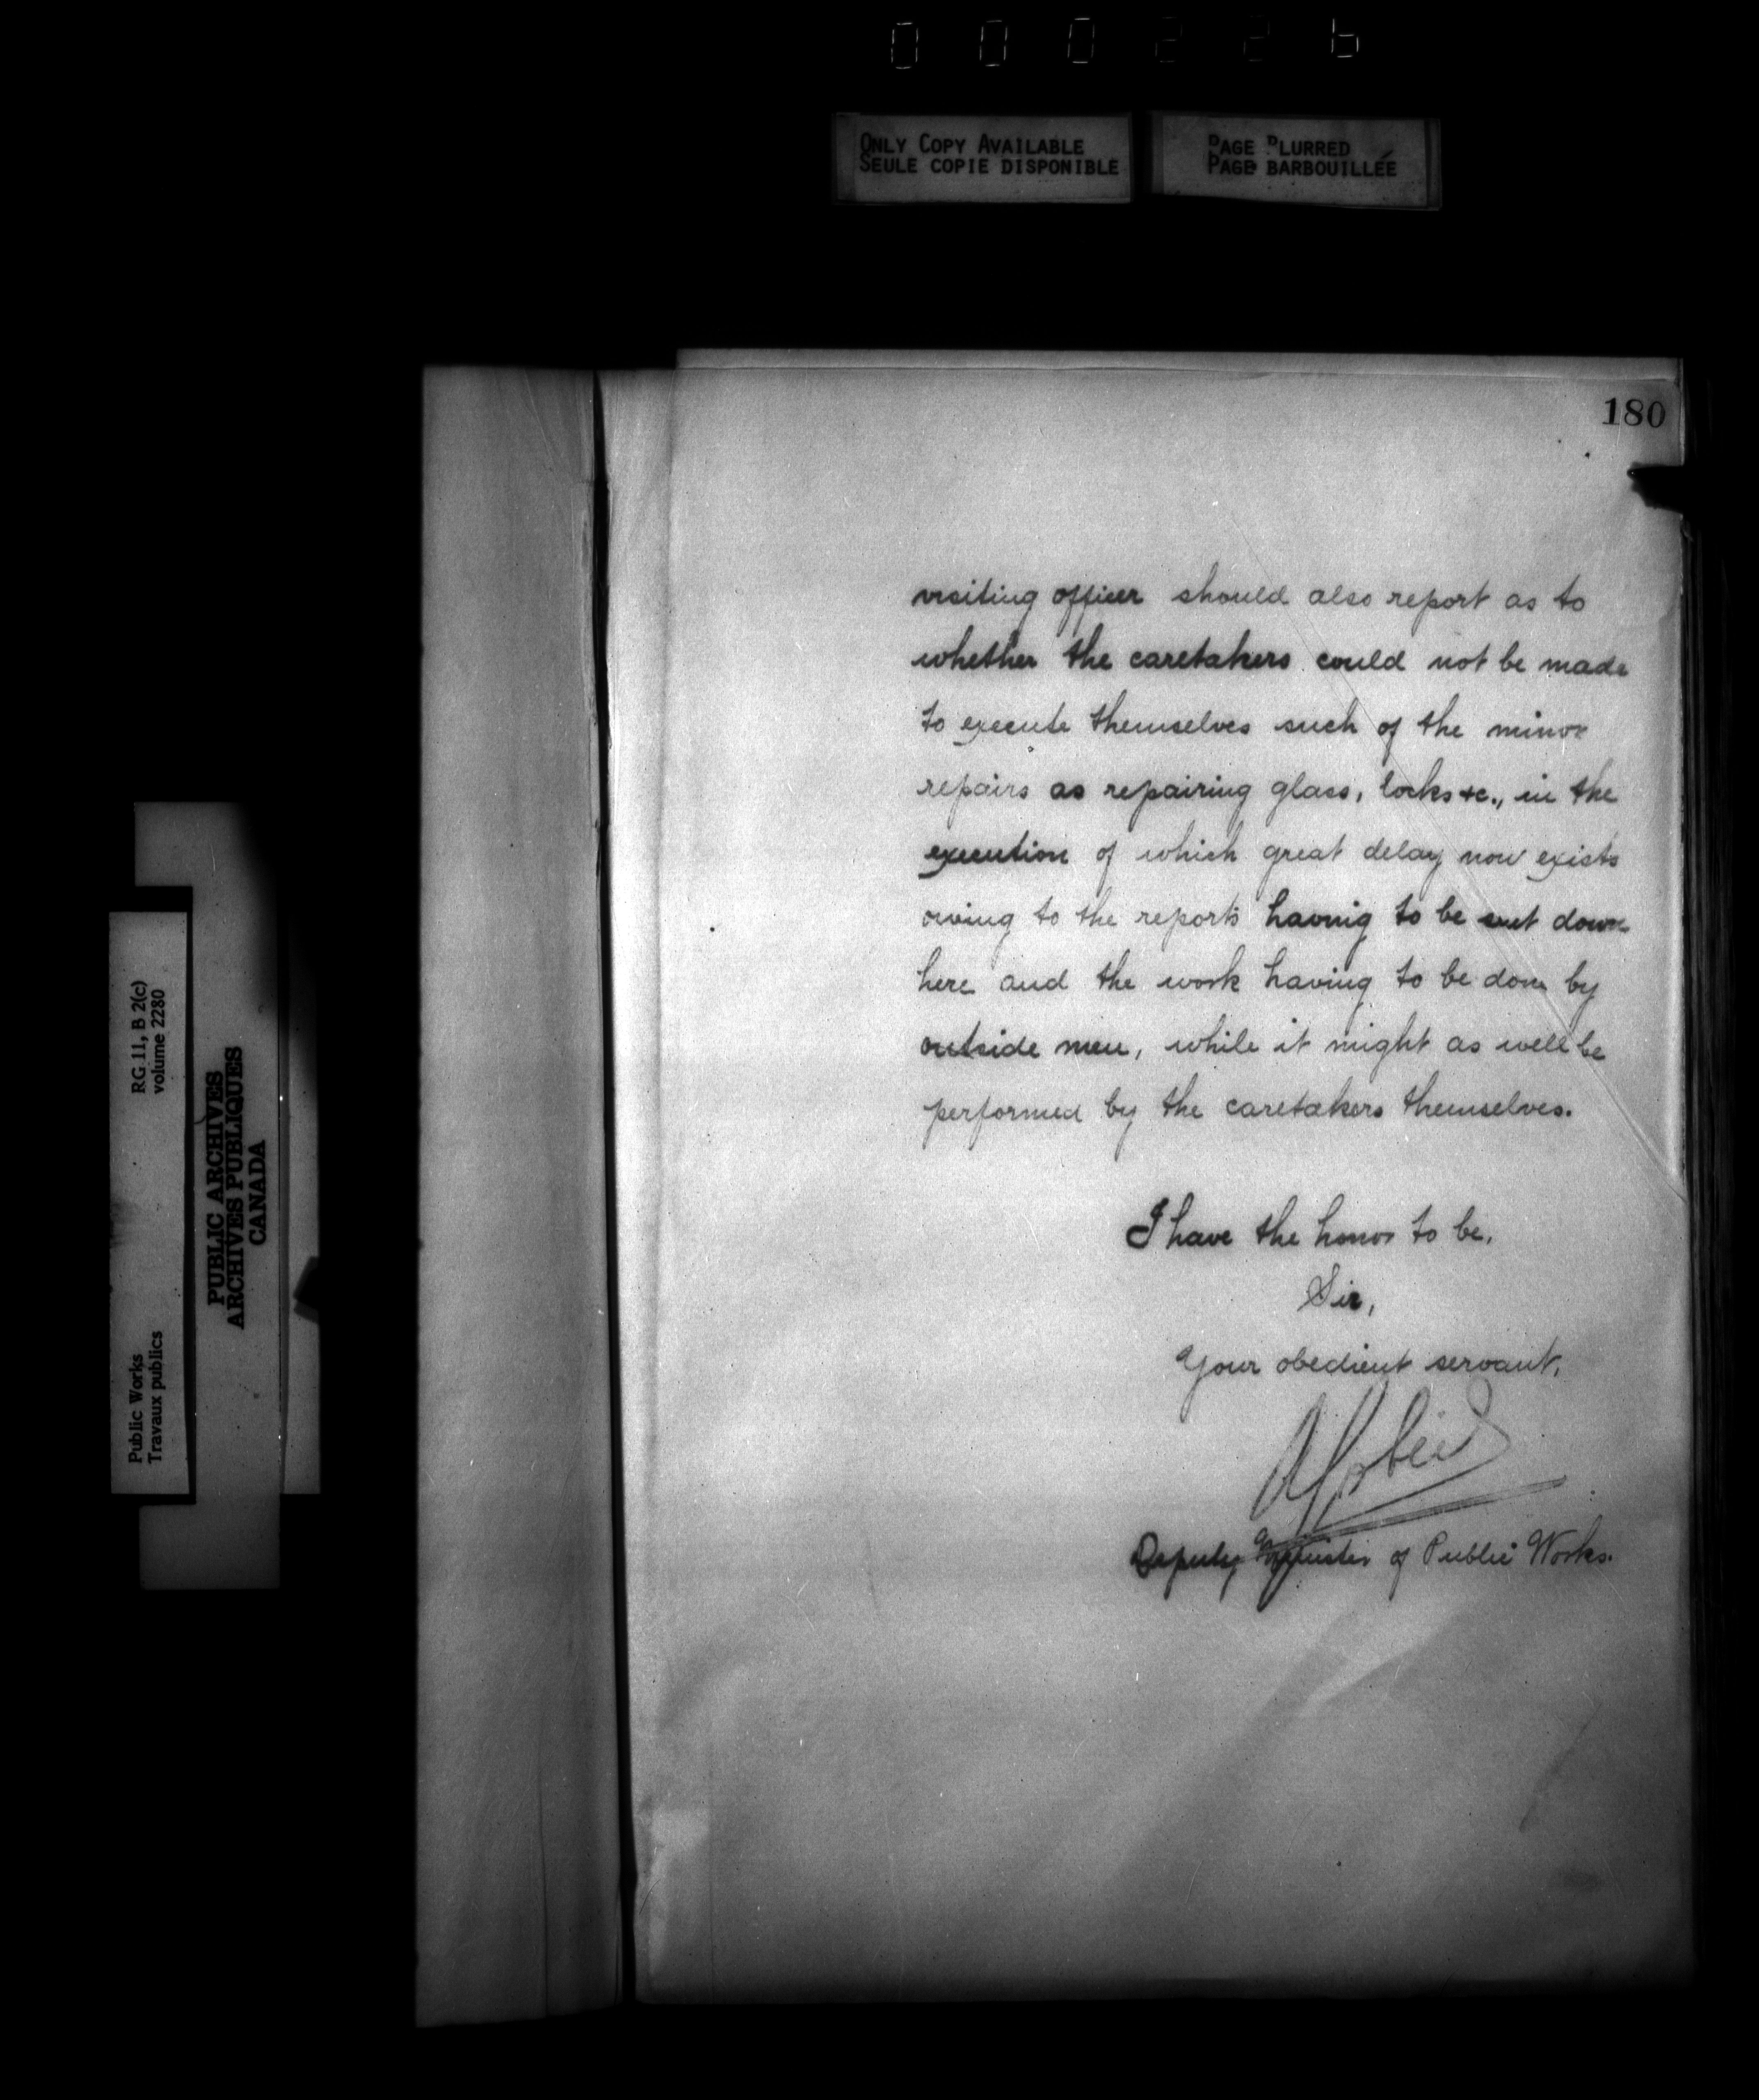 000226
ONLY COPY AVAILABLE
SEULE COPIE DISPONIBLE
PAGE BLURRED
PAGE BARBOUILLÉE
180
visiting officer should also report as to
whether the caretakers could not be made
to execute themselves such of the minor
repairs as repairing glass, locks &c., in the
execution of which great delay now exists
owing to the reports having to be sent down
here and the work having to be done by
outside men, while it might as well be
performed by the caretakers themselves.
I have the honor to be,
Sir,
Your obedient servant,
AGobeil
Deputy Minister of Public Works.
RG 11, B 2(c)
volume 2280
Public Works
Travaux publics
PUBLIC ARCHIVES
ARCHIVES PUBLIQUES
CANADA